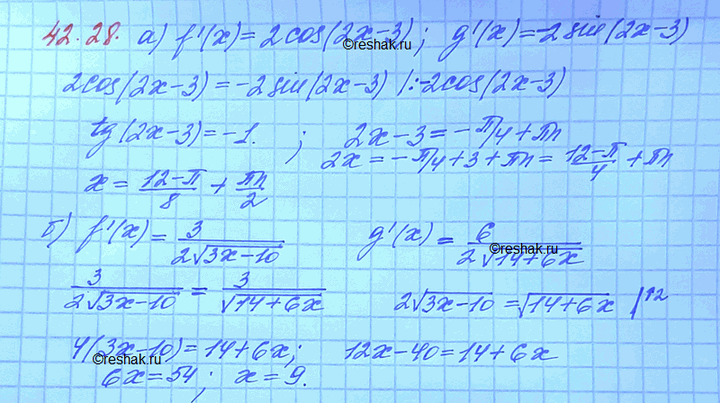 42.28. а) f'(x) = 2cos(2x-3); g'(x) = -2sin(2x-3)
©reshak.ru
2cos(2x-3) = -2sin(2x-3) |:-2cos(2x-3)
tg(2x-3) = -1. ; 2x-3 = -π/4 + πn
2x = -π/4 + 3 + πn = (12-π)/4 + πn
x = (12-π)/8 + πn/2
б) f'(x) = 3/(2√(3x-10)) g'(x) = 6/(2√(14+6x))
©reshak.ru
3/(2√(3x-10)) = 3/√(14+6x) 2√(3x-10) = √(14+6x) |↑2
4(3x-10) = 14+6x; 12x-40 = 14+6x
©reshak.ru
6x = 54; x = 9.